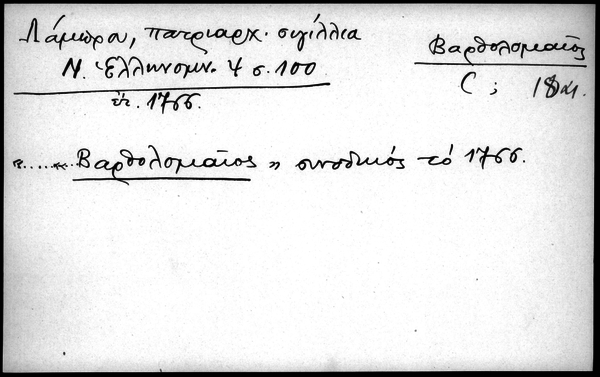 Λάμπρου, πατριαρχ. σιγίλλια
Ν. Ἑλληνομν. 4 σ. 100
ἔτ. 1766.
Βαρθολομαῖος
«..... Βαρθολομαῖος» συνοδικός τό 1766.